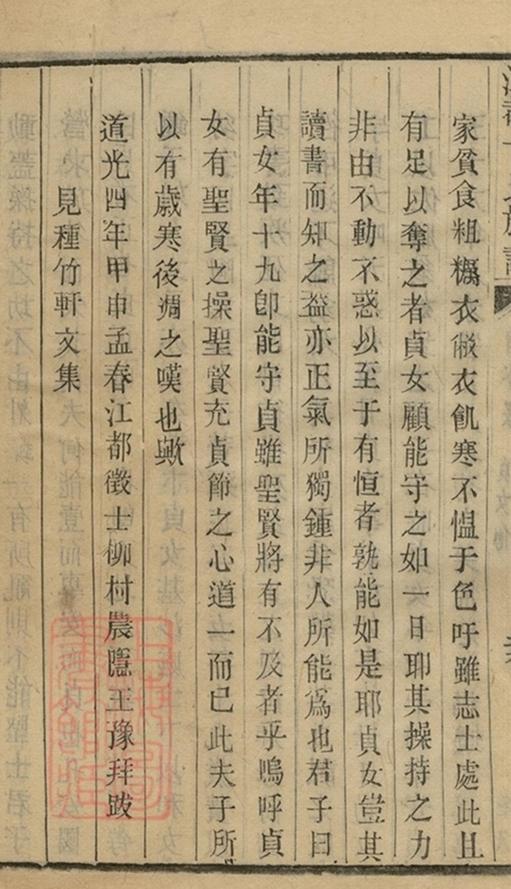 家貧食粗糲衣敝衣飢寒不慍于色吁雖志士處此且
有足以奪之者貞女顧能守之如一日耶其操持之力
非由不動不惑以至于有恒者孰能如是耶貞女豈其
讀書而知之蓋亦正氣所獨鍾非人所能爲也君子曰
貞女年十九卽能守貞雖聖賢將有不及者乎嗚呼貞
女有聖賢之操聖賢充貞節之心道一而已此夫子所
以有歲寒後凋之嘆也歟
道光四年甲申孟春江都徵士柳村農隱王豫拜跋
見種竹軒文集